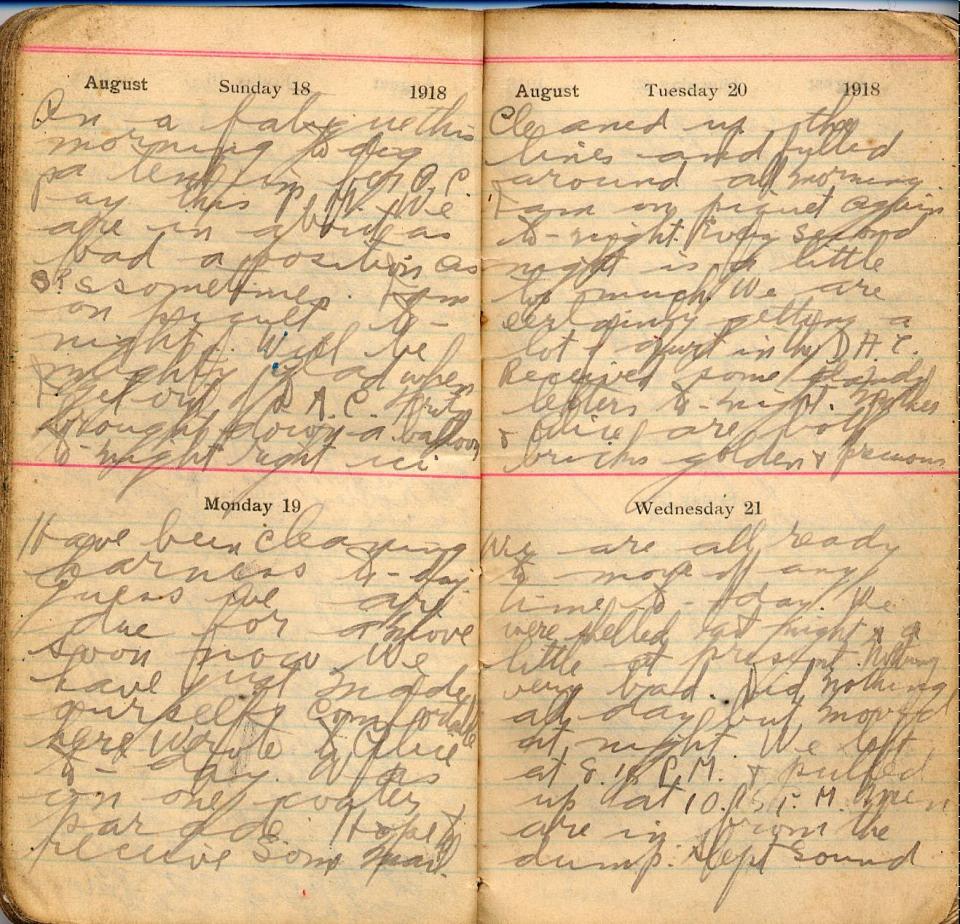 August Sunday 18 1918
On a fatigue this
morning to dig
pa tent in for O.C.
Pay this P.M. We
are in about as
bad a position as
sometimes. I am
on piquet to-
night. Will be
mighty glad when
I get out of D.A.C. Fritz
brought down a balloon
to-night right
Monday 19
Have been cleaning
harness to-day
guess we are
due for a move
soon now We
have just made
ourselfs comfortable
here Wrote to Alice
to-day. Was
on one water
parade. Hope to
receive some mail.
August Tuesday 20 1918
Cleaned up the
lines and fulled
around all morning.
I am on piquet again
to-night. Every second
night is a little
too much. We are
certainly getting a
lot of in the D.A.C.
Received some
letters to-night. Mother
& Alice are both
bricks golden & precious
Wednesday 21
We are all ready
to move off any
time to-day. We
were shelled last night a
little at present Nothing
very bad. Did nothing
all day but moved
at night. We left
at 8.15 P.M. & pulled
up at 10.15 P.M. Men
are in from the
dump. Slept sound